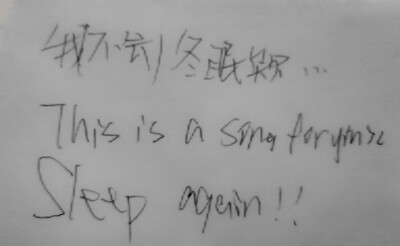 我不冬眠...
This is a song for
Sleep again!!